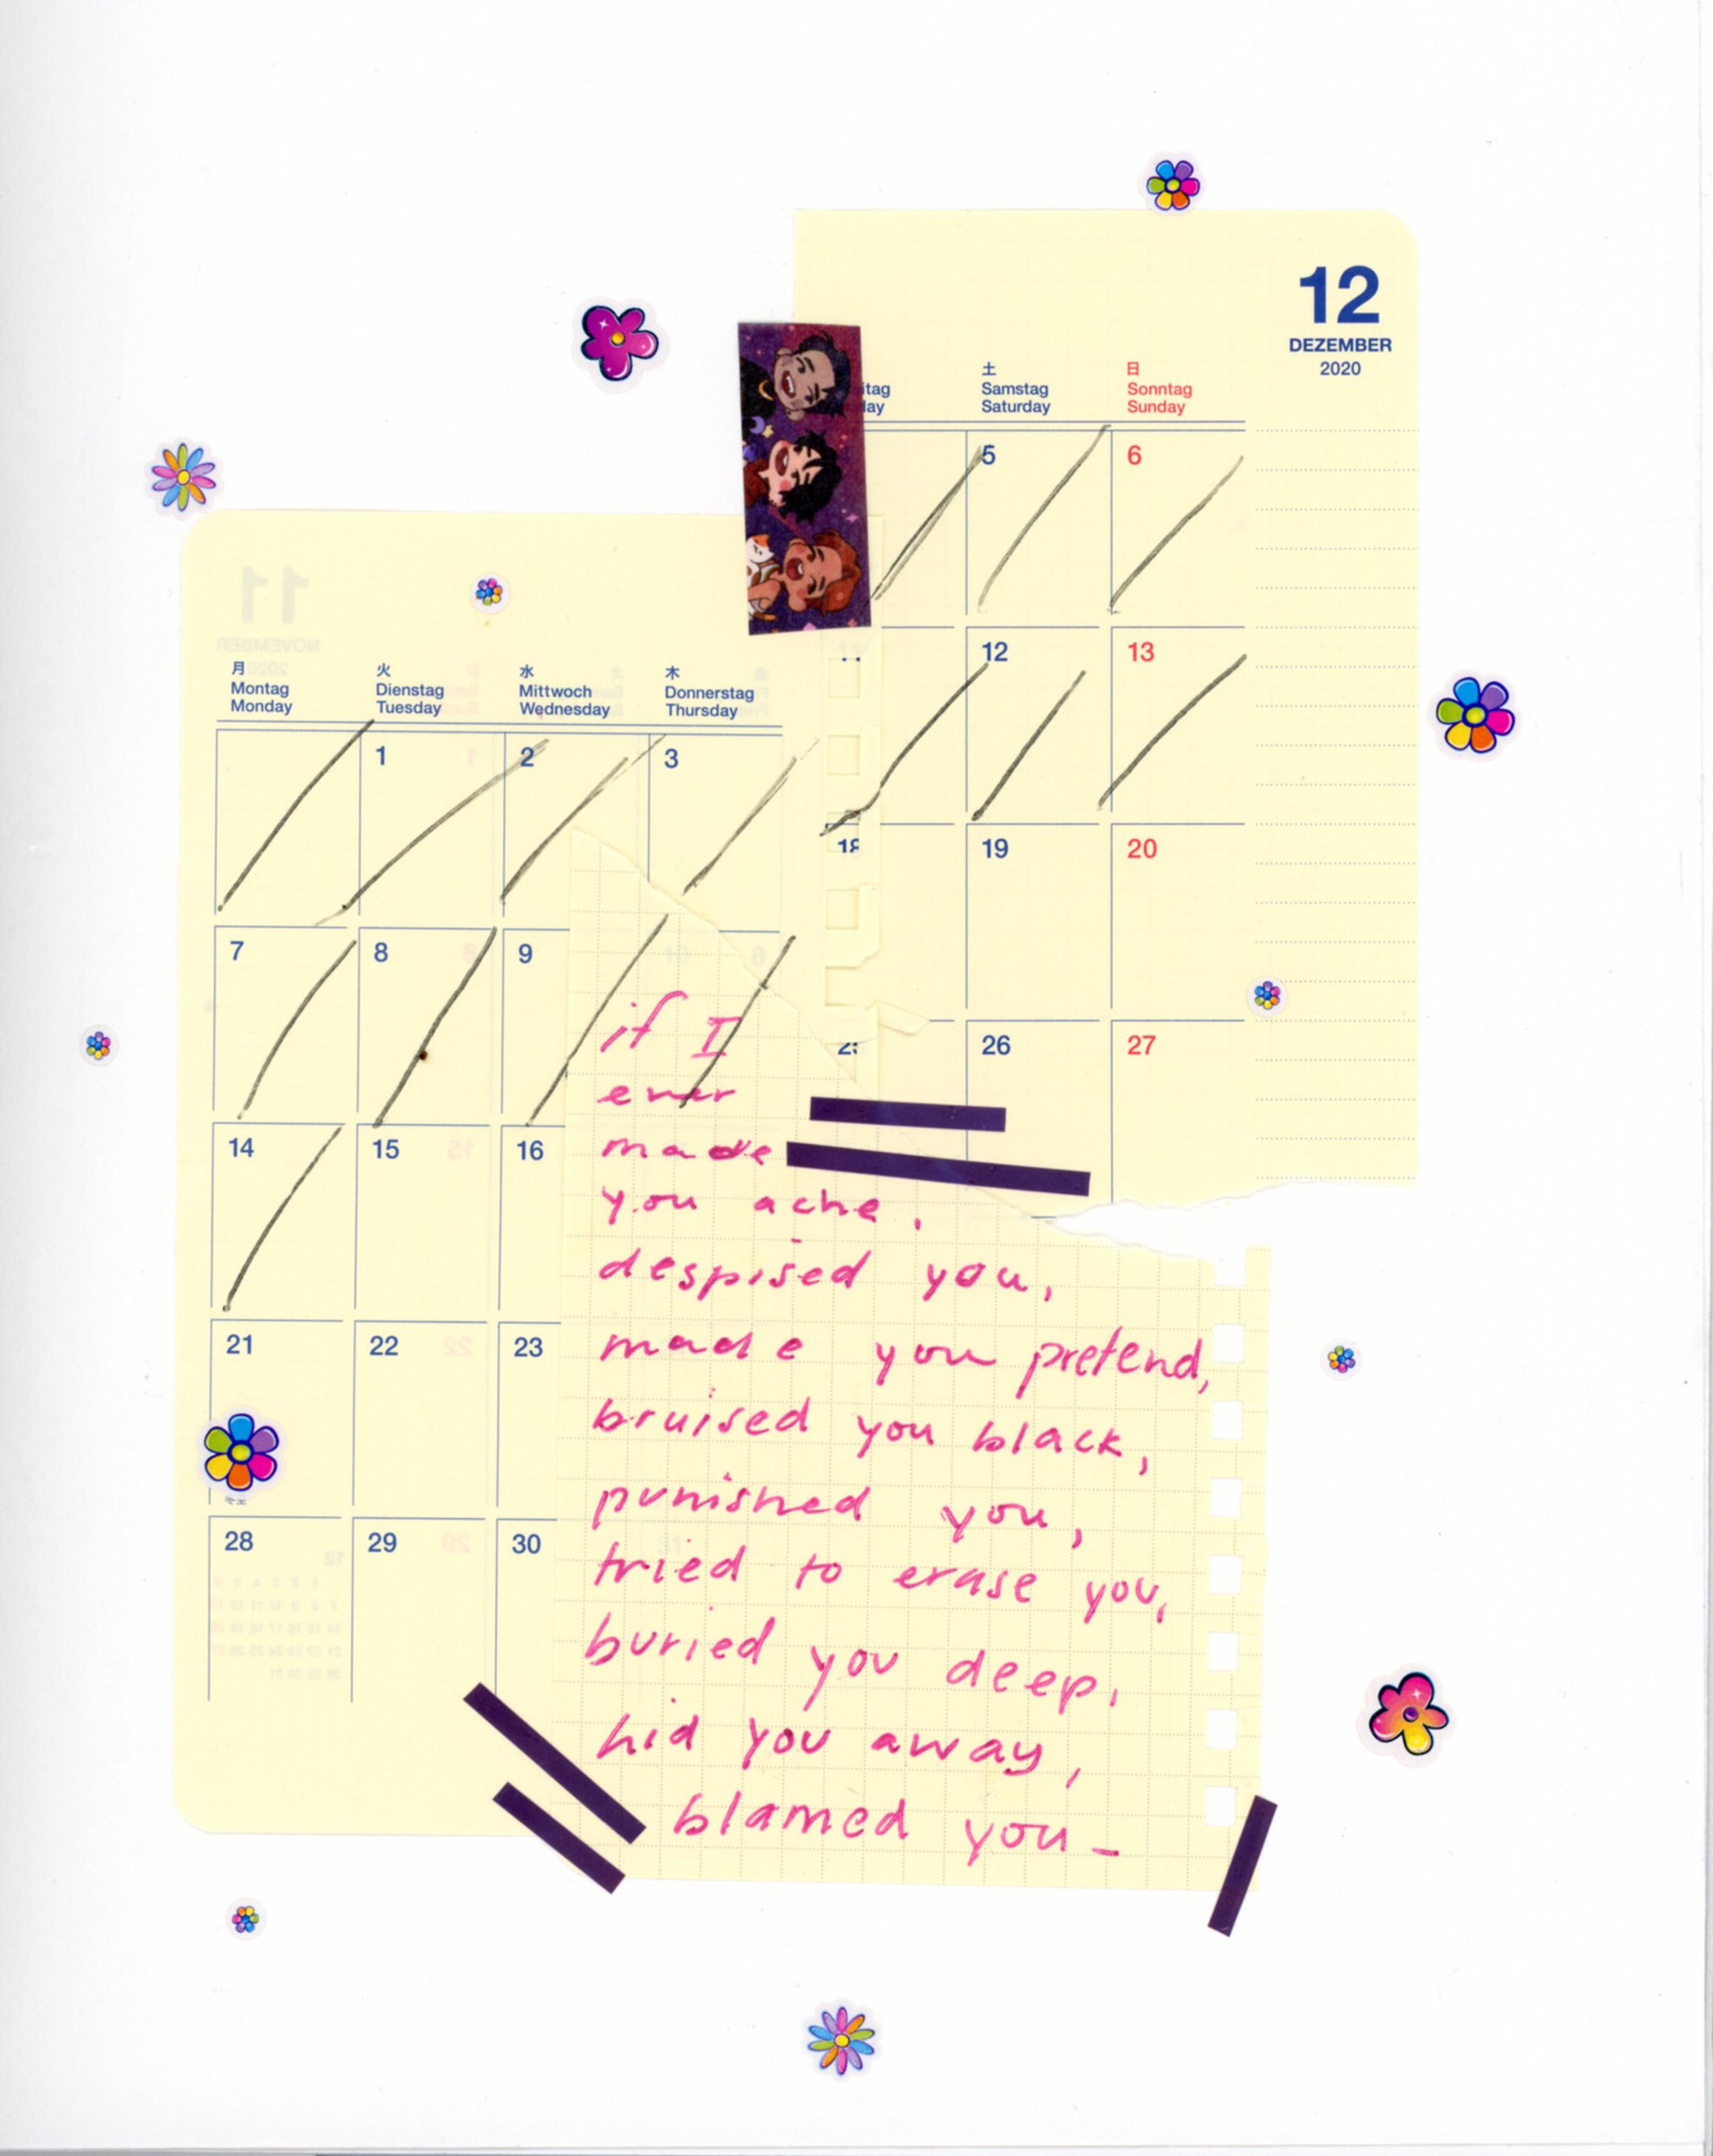 12
DEZEMBER
2020
itag
土
Samstag
Saturday
日
Sonntag
Sunday
5 6
12 13
18 19 20
26 27
月
Montag
Monday
火
Dienstag
Tuesday
水
Mittwoch
Wednesday
木
Donnerstag
Thursday
1 2 3
7 8 9
14 15 16
21 22 23
28 29 30
if I
ever
made
you ache,
despised you,
made you pretend,
bruised you black,
punished you,
tried to erase you,
buried you deep,
hid you away,
blamed you-